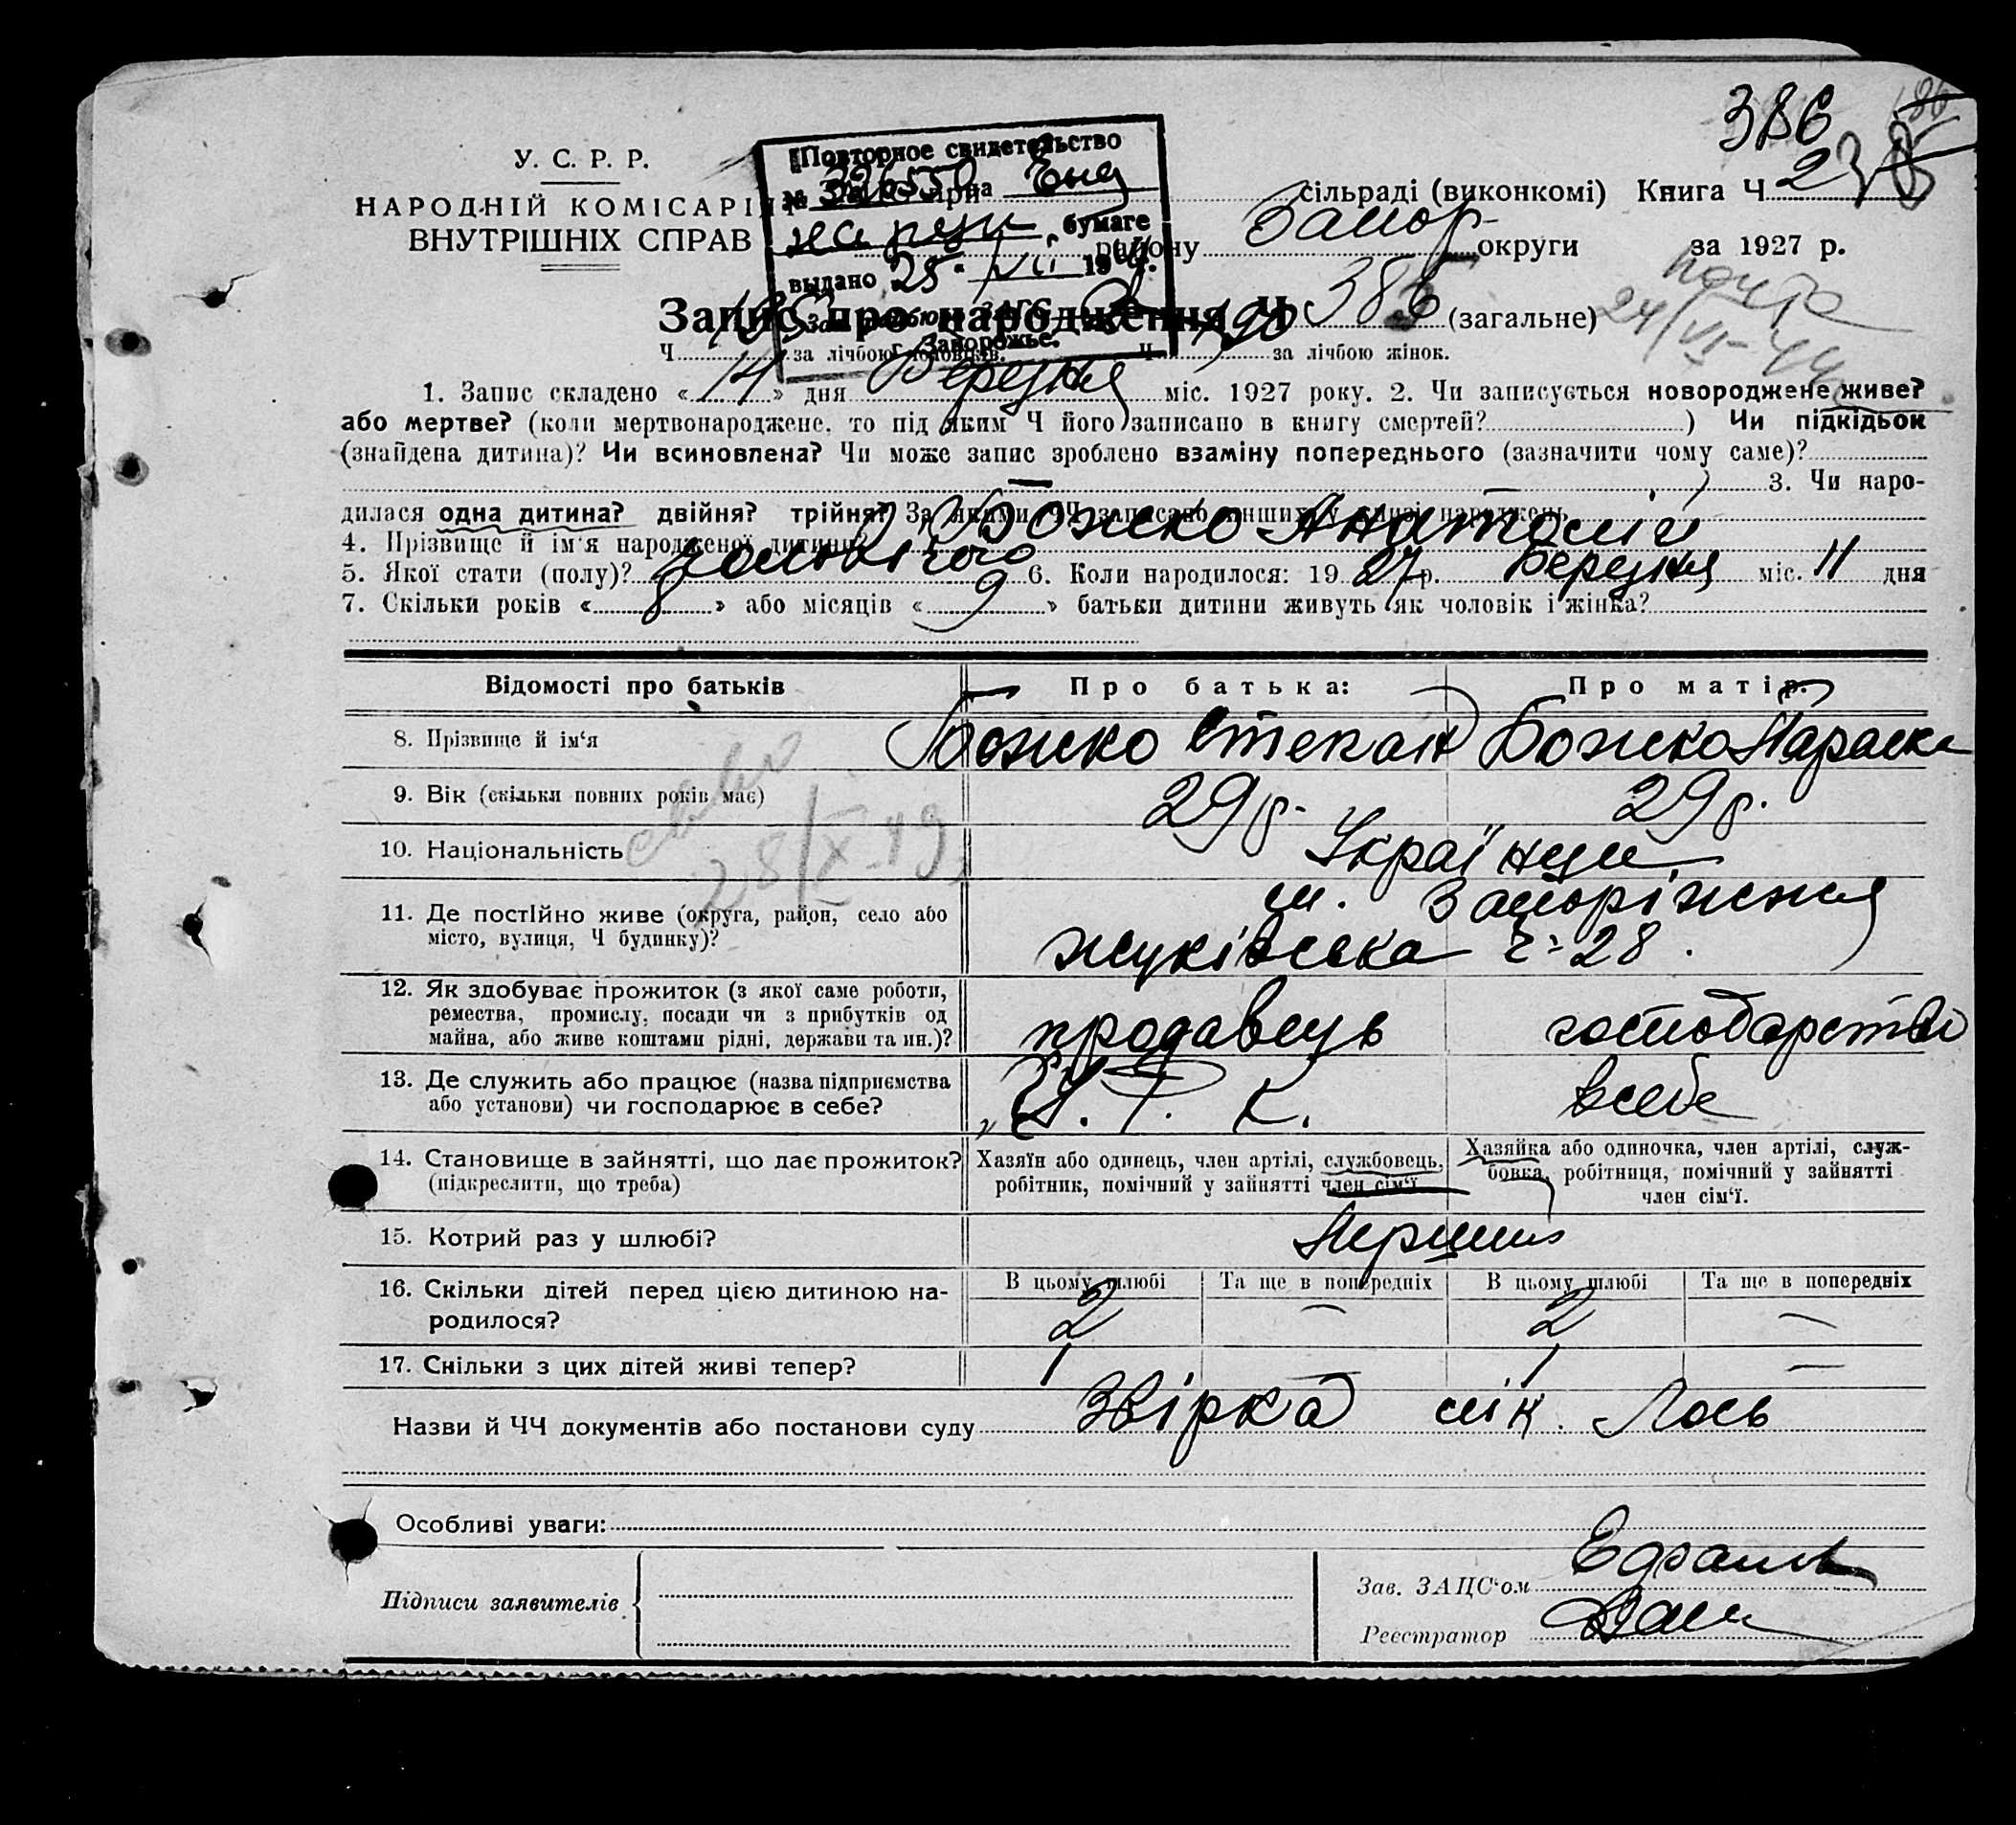 386
У. С. Р. Р.
НАРОДНІЙ КОМІСАРІЯТ
ВНУТРІШНІХ СПРАВ
Повторное свидетельство
№ на
бумаге
выдано 25 VII 19
Зав. бюро ЗАГС
г. Запорожье.
при сільраді (виконкомі) Книга Ч 2
району Запор округи за 1927 р.
почта
24/VI-44
Запис про народження Ч 386 (загальне)
Ч за лічбою чоловіків. Ч 190 за лічбою жінок.
1. Запис складено «14» дня Березня міс. 1927 року. 2. Чи записується новороджене живе?
або мертве? (коли мертвонароджене, то під яким Ч його записано в книгу смертей? ) Чи підкідьок
(знайдена дитина)? Чи всиновлена? Чи може запис зроблено взаміну попереднього (зазначити чому саме)?
— 3. Чи наро-
дилася одна дитина? двійня? трійня? За якими ЧЧ записано инших у книзі народжень
4. Прізвище й ім'я народженої дитини? Божко Анатолій
5. Якої стати (полу)? чоловічого 6. Коли народилося: 1927 р. Березня міс. 11 дня
7. Скільки років «8» або місяців «9» батьки дитини живуть як чоловік і жінка?
Відомості про батьків Про батька: Про матір.
8. Прізвище й ім'я Божко Степан Божко Параска
9. Вік (скільки повних років має) 29 р. 29 р.
28/X-49
10. Національність Українци
11. Де постійно живе (округа, район, село або м. Запоріжжя
місто, вулиця, Ч будинку)? Жуківська ч. 28.
12. Як здобуває прожиток (з якої саме роботи,
ремества, промислу, посади чи з прибутків од
майна, або живе коштами рідні, держави та ин.)? продавець господарство
13. Де служить або працює (назва підприємства
або установи) чи господарює в себе? Р. К. всебе
14. Становище в зайнятті, що дає прожиток? Хазяїн або одинець, член артілі, службовець, Хазяйка або одиночка, член артілі, служ-
(підкреслити, що треба) робітник, помічний у зайнятті член сім'ї. бовка, робітниця, помічний у зайнятті
член сім'ї.
15. Котрий раз у шлюбі? Перший
16. Скільки дітей перед цією дитиною на- В цьому шлюбі Та ще в попередніх В цьому шлюбі Та ще в попередніх
родилося? 2 — 2 —
17. Скільки з цих дітей живі тепер? 1 1 —
Назви й ЧЧ документів або постанови суду Звірка Лось
Особливі уваги:
Підписи заявителів
Зав. ЗАЦС'ом
Реєстратор